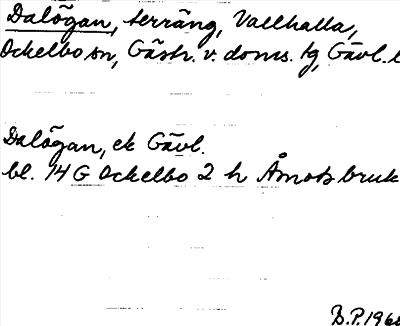 Dalögan, terräng, Vallhalla,
Ockelbo sn, Gästr. v. doms. tg, Gävl. l
Dalögan, ek Gävl.
bl. 14 G Ockelbo 2 h Åmots bruk
B.P. 1968